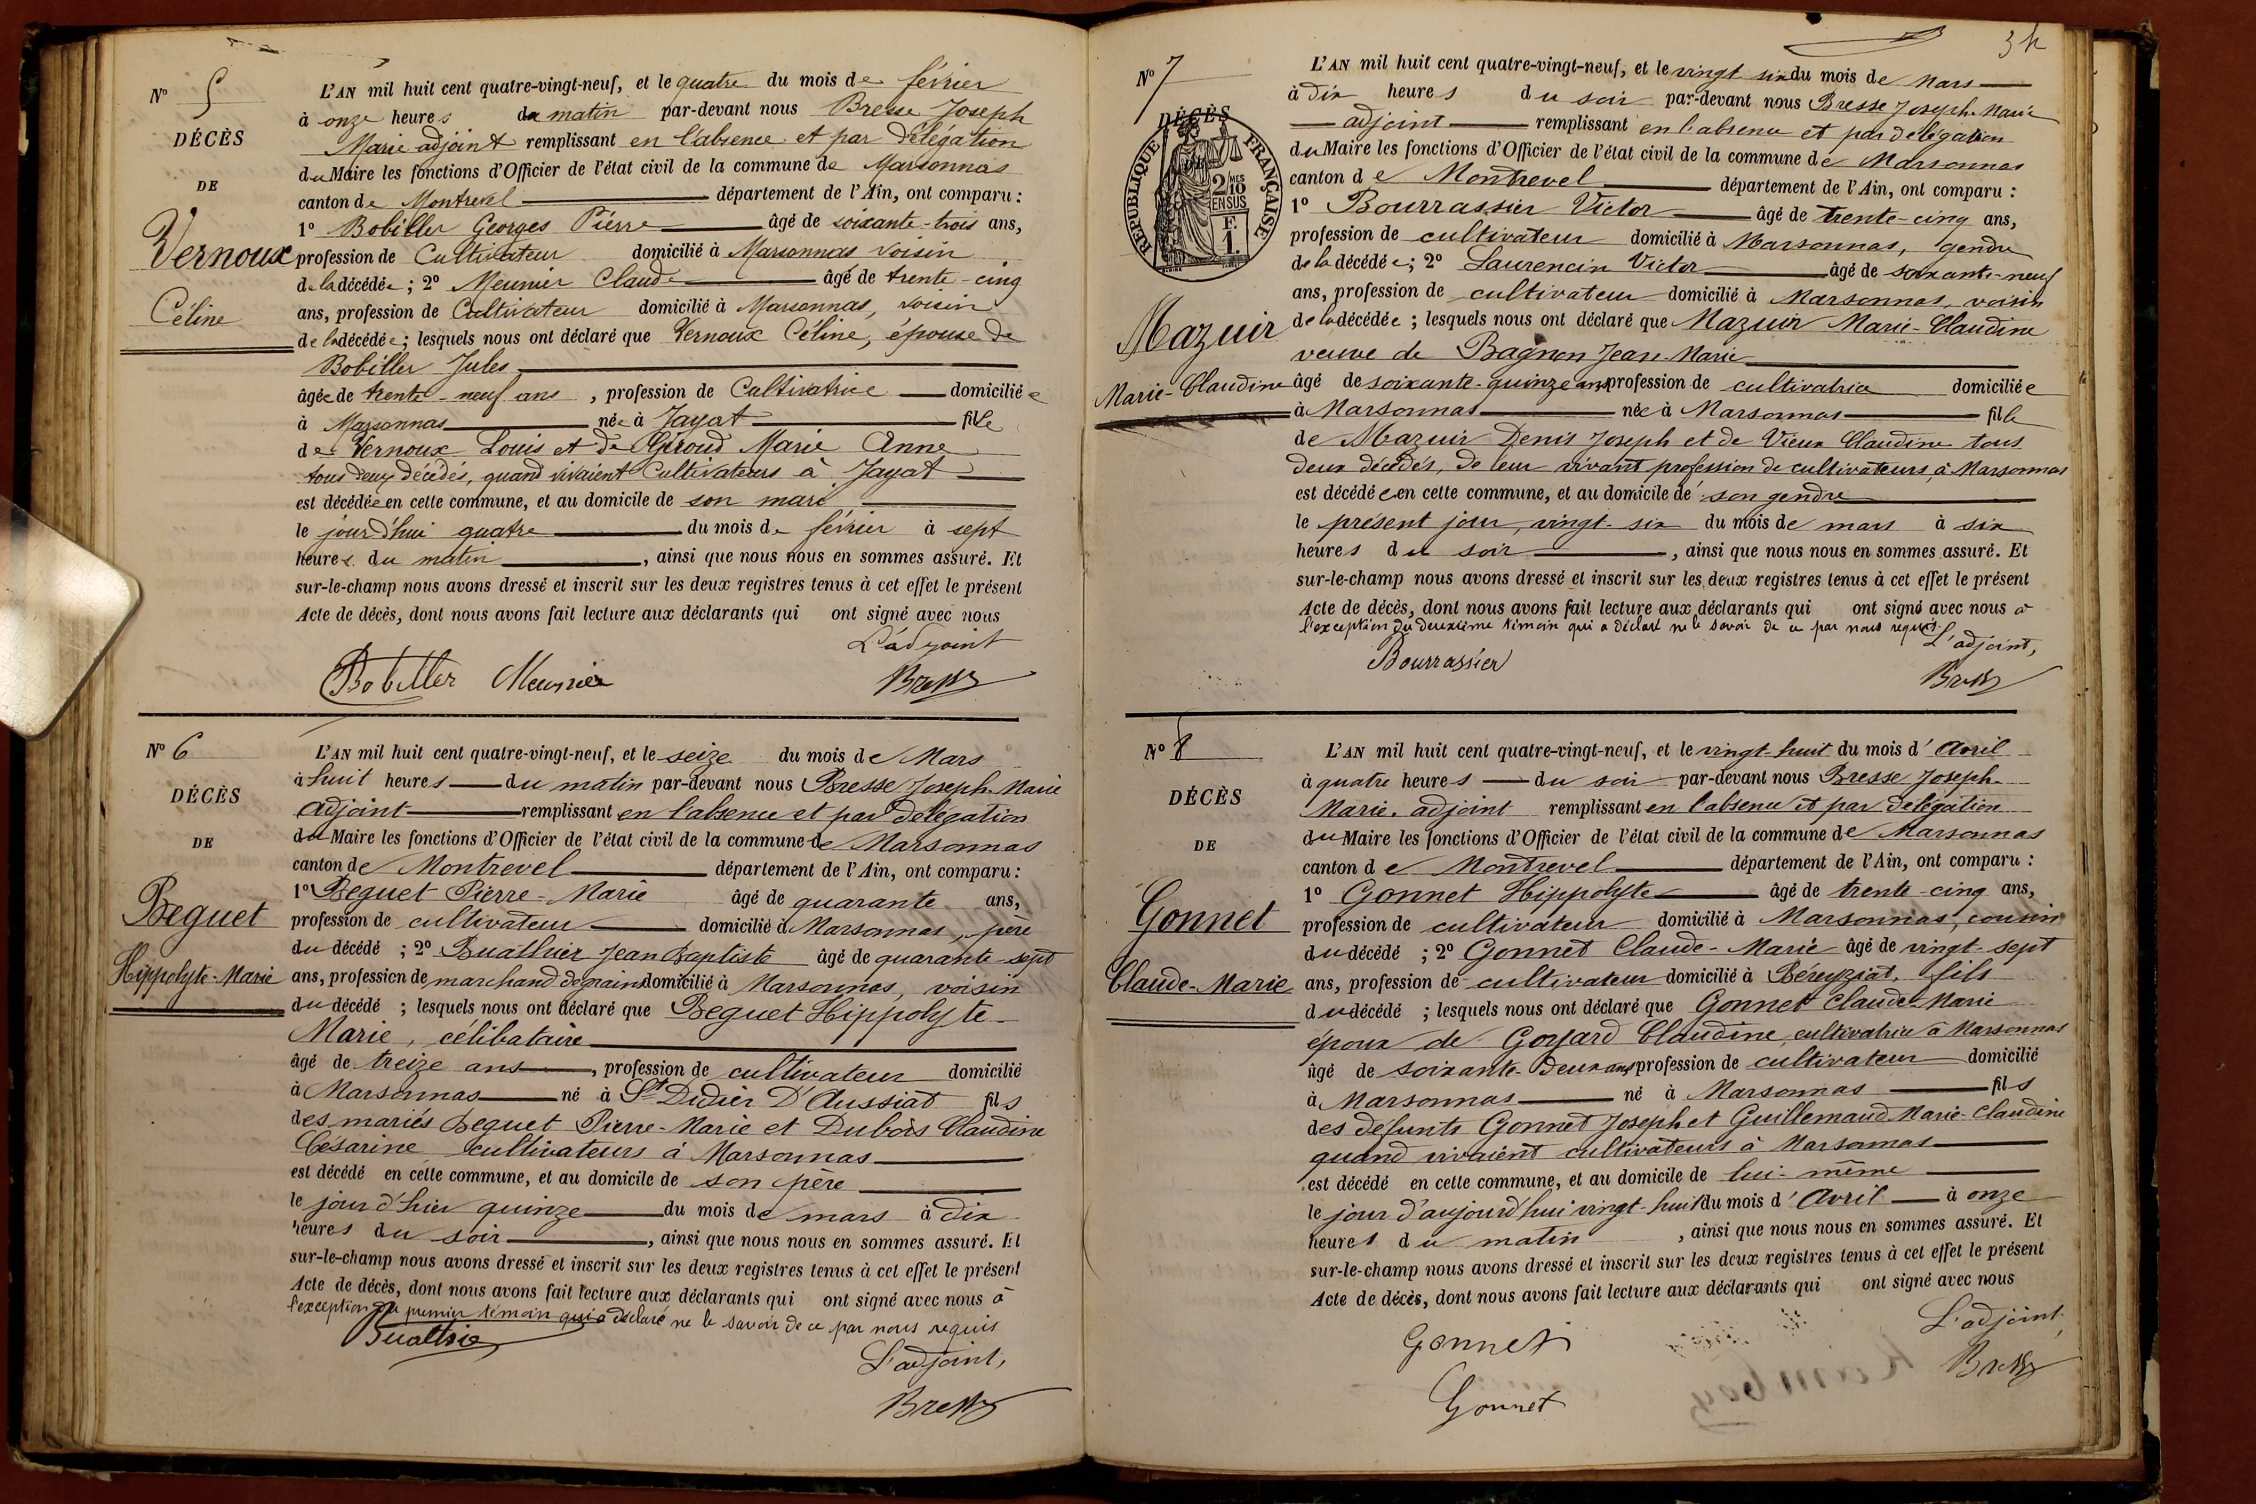 N° 5
DÉCÈS
DE
Vernoux
Céline
L'AN mil huit cent quatre-vingt-neuf, et le quatre du mois de février
à onze heures du matin par-devant nous Bresse Joseph
Marie adjoint remplissant en l'absence et par délégation
du Maire les fonctions d'Officier de l'état civil de la commune de Marsonnas
canton de Montrevel département de l'Ain, ont comparu :
1° Bobiller Georges Pierre âgé de soixante-trois ans,
profession de Cultivateur domicilié à Marsonnas voisin
de la décédée ; 2° Meunier Claude âgé de trente-cinq
ans, profession de Cultivateur domicilié à Marsonnas, voisin
de la décédée ; lesquels nous ont déclaré que Vernoux Céline, épouse de
Bobiller Jules
âgée de trente-neuf ans, profession de Cultivatrice domiciliée
à Marsonnas née à Jayat fille
de Vernoux Louis et de Giroud Marie Anne
tous deux décédés, quand vivaient Cultivateurs à Jayat
est décédée en cette commune, et au domicile de son mari
le jourd'hui quatre du mois de février à sept
heures du matin, ainsi que nous nous en sommes assuré. Et
sur-le-champ nous avons dressé et inscrit sur les deux registres tenus à cet effet le présent
Acte de décès, dont nous avons fait lecture aux déclarants qui ont signé avec nous
L'adjoint
Bobiller Meunier Bresse
N° 6
DÉCÈS
DE
Beguet
Hippolyte-Marie
L'AN mil huit cent quatre-vingt-neuf, et le seize du mois de Mars
à huit heures du matin par-devant nous Bresse Joseph-Marie
adjoint remplissant en l'absence et par délégation
du Maire les fonctions d'Officier de l'état civil de la commune de Marsonnas
canton de Montrevel département de l'Ain, ont comparu :
1° Beguet Pierre-Marie âgé de quarante ans,
profession de cultivateur domicilié à Marsonnas, père
du décédé ; 2° Buathier Jean Baptiste âgé de quarante-sept
ans, profession de marchand de grains domicilié à Marsonnas, voisin
du décédé ; lesquels nous ont déclaré que Beguet Hippolyte-
Marie, célibataire
âgé de treize ans, profession de cultivateur domicilié
à Marsonnas né à St Didier D'Aussiat fils
des mariés Beguet Pierre-Marie et Dubois Claudine
Césarine cultivateurs à Marsonnas
est décédé en cette commune, et au domicile de son père
le jour d'hier quinze du mois de mars à dix
heures du soir, ainsi que nous nous en sommes assuré. Et
sur-le-champ nous avons dressé et inscrit sur les deux registres tenus à cet effet le présent
Acte de décès, dont nous avons fait lecture aux déclarants qui ont signé avec nous à
l'exception du premier témoin qui a déclaré ne le savoir de ce par nous requis
Buathier
L'adjoint,
Bresse
34
N° 7
DÉCÈS
RÉPUBLIQUE FRANÇAISE
2 MES
10
EN SUS
F.
1.
Mazuir
Marie-Claudine
L'AN mil huit cent quatre-vingt-neuf, et le vingt six du mois de Mars
à dix heures du soir par-devant nous Bresse Joseph-Marie
adjoint remplissant en l'absence et par délégation
du Maire les fonctions d'Officier de l'état civil de la commune de Marsonnas
canton de Montrevel département de l'Ain, ont comparu :
1° Bourrassier Victor âgé de trente-cinq ans,
profession de cultivateur domicilié à Marsonnas, gendre
de la décédée ; 2° Laurencin Victor âgé de soixante-neuf
ans, profession de cultivateur domicilié à Marsonnas, voisin
de la décédée ; lesquels nous ont déclaré que Mazuir Marie-Claudine
veuve de Bagnon Jean-Marie
âgé de soixante-quinze ans profession de cultivatrice domiciliée
à Marsonnas née à Marsonnas fille
de Mazuir Denis Joseph et de Vieux Claudine tous
deux décédés, de leur vivant profession de cultivateurs, à Marsonnas
est décédée en cette commune, et au domicile de son gendre
le présent jour, vingt-six du mois de mars à six
heures du soir, ainsi que nous nous en sommes assuré. Et
sur-le-champ nous avons dressé et inscrit sur les deux registres tenus à cet effet le présent
Acte de décès, dont nous avons fait lecture aux déclarants qui ont signé avec nous à
l'exception du deuxième témoin qui a déclaré ne le savoir de ce par nous requis.
L'adjoint,
Bourrassier
Bresse
N° 8
DÉCÈS
DE
Gonnet
Claude-Marie
L'AN mil huit cent quatre-vingt-neuf, et le vingt-huit du mois d'Avril
à quatre heures du soir par-devant nous Bresse Joseph-
Marie, adjoint remplissant en l'absence et par délégation
du Maire les fonctions d'Officier de l'état civil de la commune de Marsonnas
canton de Montrevel département de l'Ain, ont comparu :
1° Gonnet Hippolyte âgé de trente-cinq ans,
profession de cultivateur domicilié à Marsonnas, cousin
du décédé ; 2° Gonnet Claude-Marie âgé de vingt-sept
ans, profession de cultivateur domicilié à Béreyziat, fils
du décédé ; lesquels nous ont déclaré que Gonnet Claude-Marie
époux de Goyard Claudine, cultivatrice à Marsonnas
âgé de soixante-deux ans profession de cultivateur domicilié
à Marsonnas né à Marsonnas fils
des défunts Gonnet Joseph et Guillemaud Marie-Claudine
quand vivaient cultivateurs à Marsonnas
est décédé en cette commune, et au domicile de lui-même
le jour d'aujourd'hui vingt-huit du mois d'Avril à onze
heures du matin, ainsi que nous nous en sommes assuré. Et
sur-le-champ nous avons dressé et inscrit sur les deux registres tenus à cet effet le présent
Acte de décès, dont nous avons fait lecture aux déclarants qui ont signé avec nous
L'adjoint,
Gonnet
Bresse
Gonnet